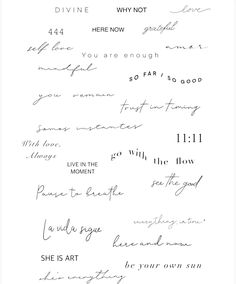 DIVINE
WHY NOT
love
444
HERE NOW
grateful
self love
You are enough
amar
mindful
SO FAR / SO GOOD
you
trust in timing
Somos instantes
11:11
With love,
Always
go with the flow
LIVE IN THE
MOMENT
see the good
Pause to breathe
La vida sigue
everything is now
here and now
SHE IS ART
be your own sun
she's everything